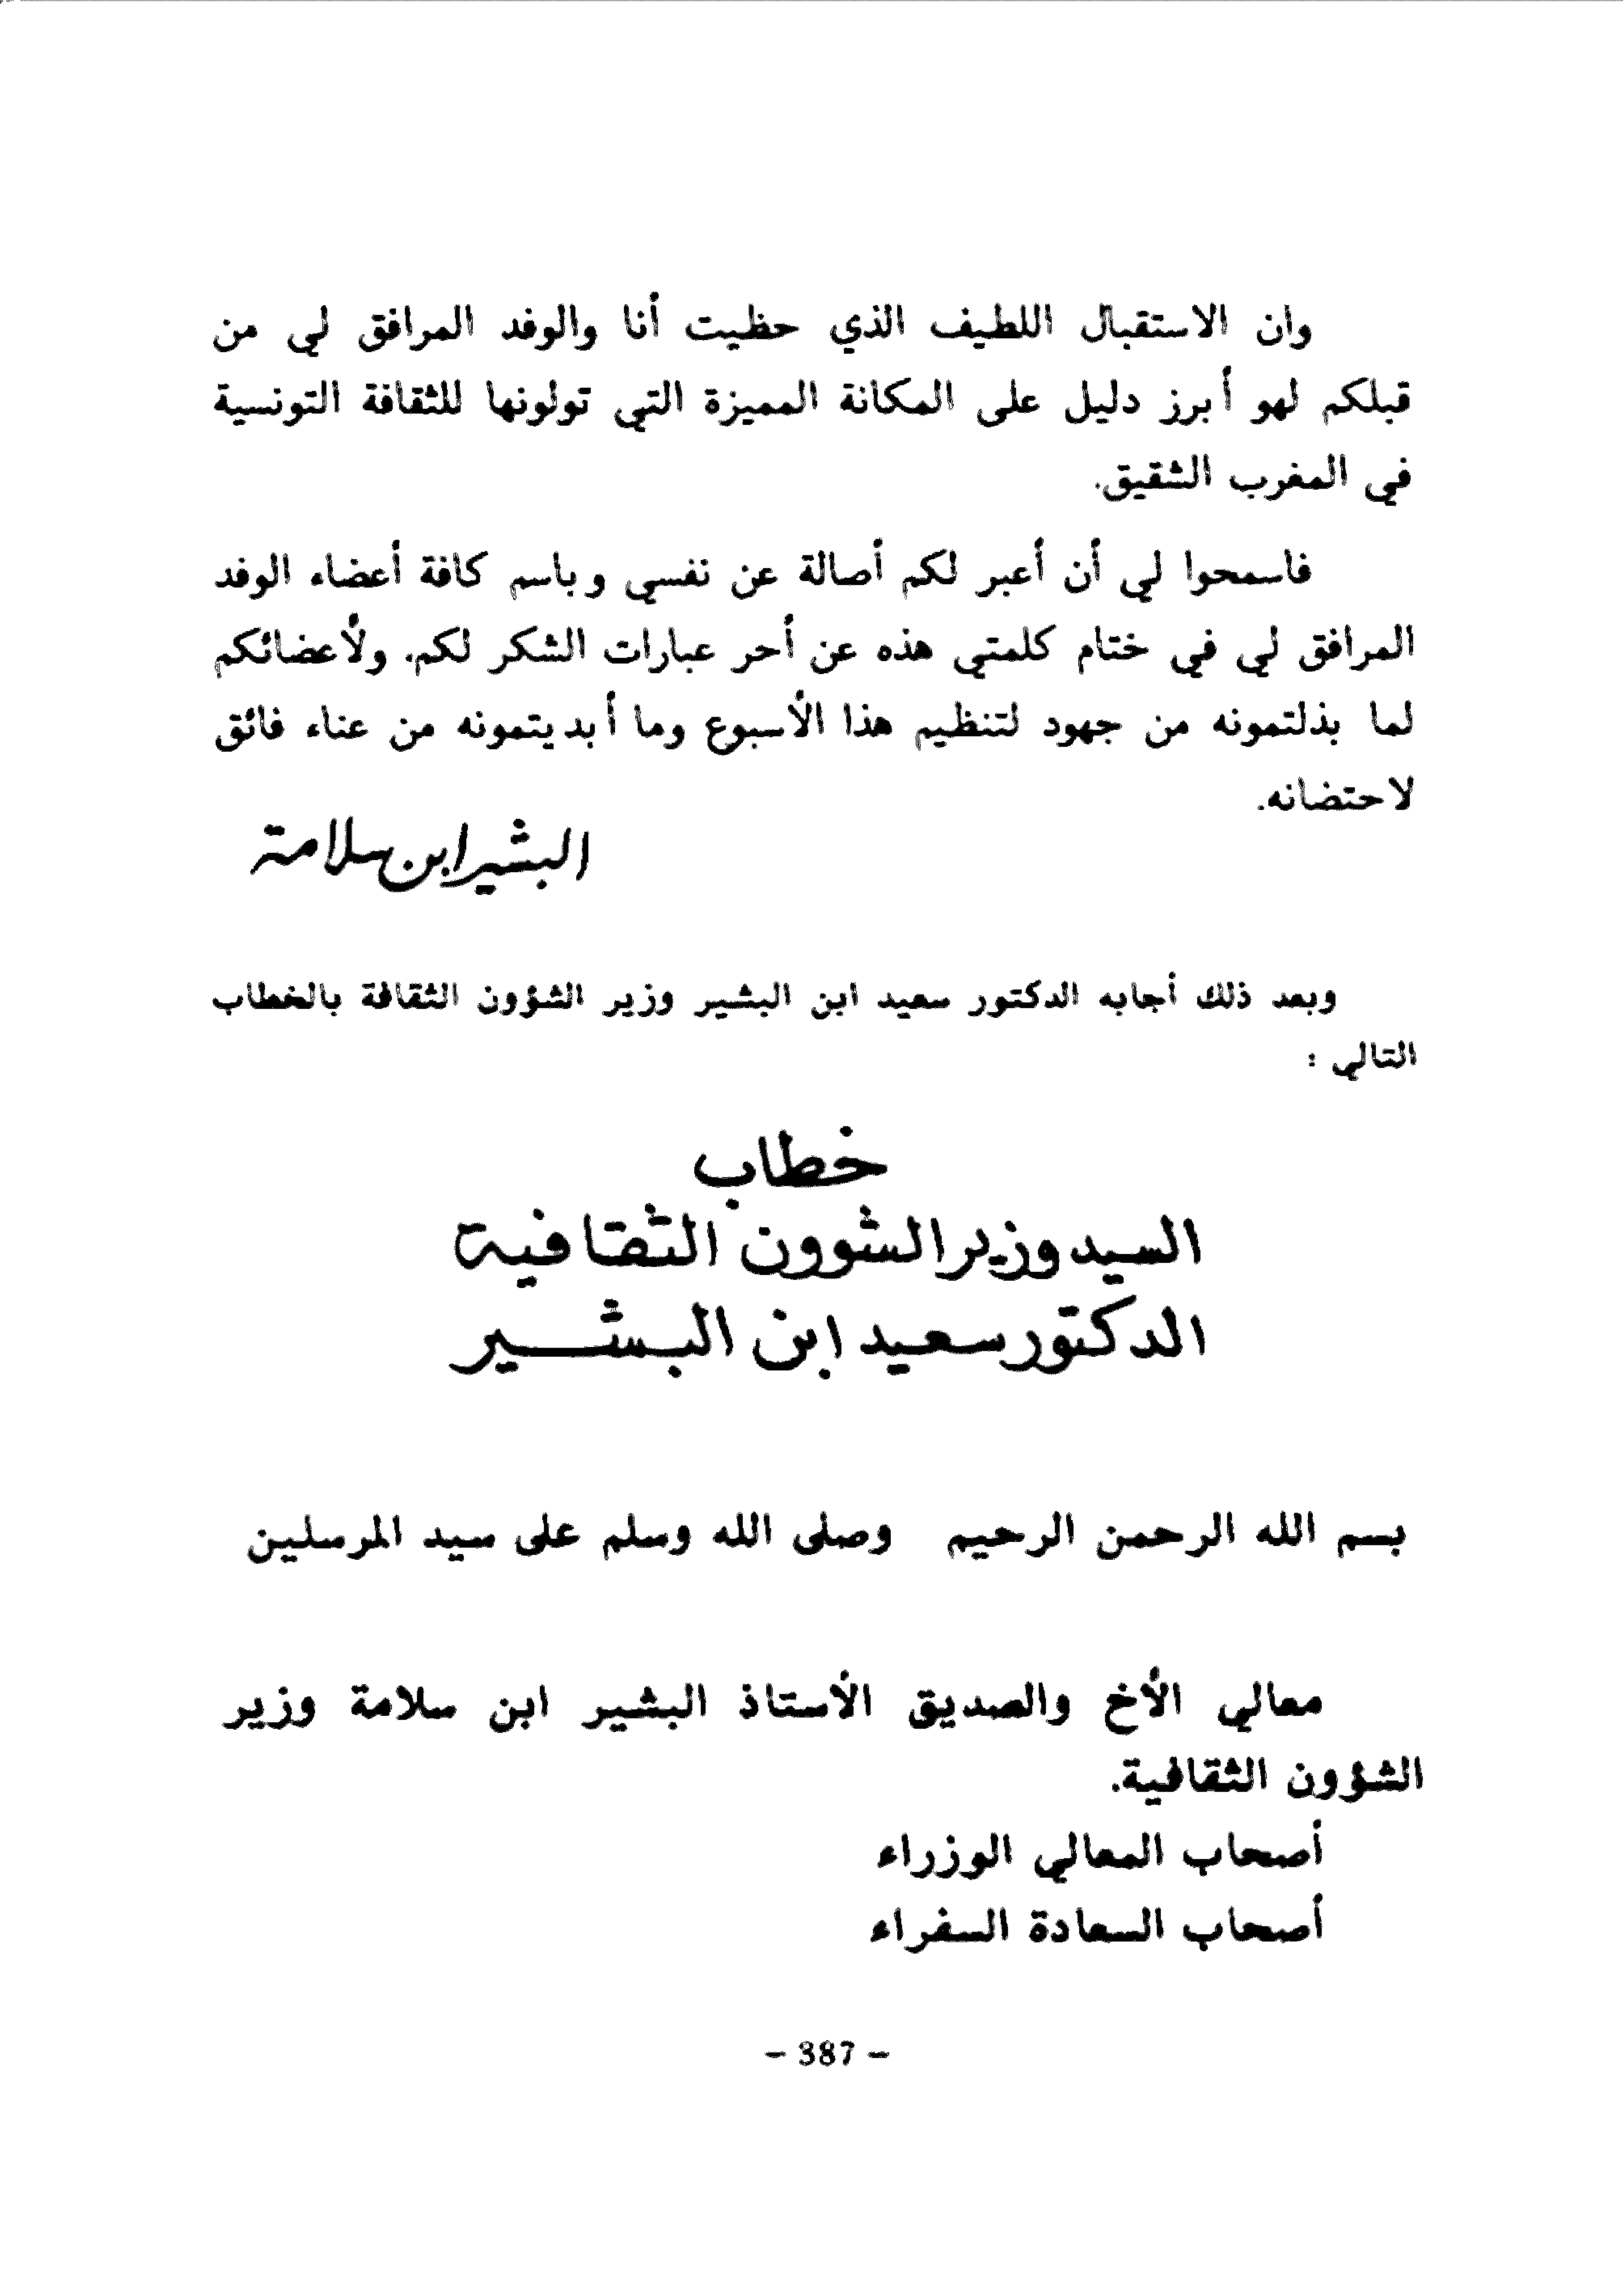 وان الاستقبال اللطيف الذي حظيت أنا والوفد المرافق لي من
قبلكم لهو أبرز دليل على المكانة المميزة التي تولونها للثقافة التونسية
في المغرب الشقيق.
فاسمحوا لي أن أعبر لكم أصالة عن نفسي وباسم كافة أعضاء الوفد
المرافق لي في ختام كلمتي هذه عن أحر عبارات الشكر لكم. ولأعضائكم
لما بذلتمونه من جهود لتنظيم هذا الأسبوع وما أبديتمونه من عناء فائق
لاحتضانه.
البشير ابن سلامة
وبعد ذلك أجابه الدكتور سعيد ابن البشير وزير الشؤون الثقافة بالخطاب
التالي :
خطاب
السيد وزير الشوون الثقافية
الدكتور سعيد ابن البشير
بسم الله الرحمن الرحيم وصلى الله وسلم على سيد المرسلين
معالي الأخ والصديق الأستاذ البشير ابن سلامة وزير
الشؤون الثقافية.
أصحاب المعالي الوزراء
أصحاب السعادة السفراء
- 387 -